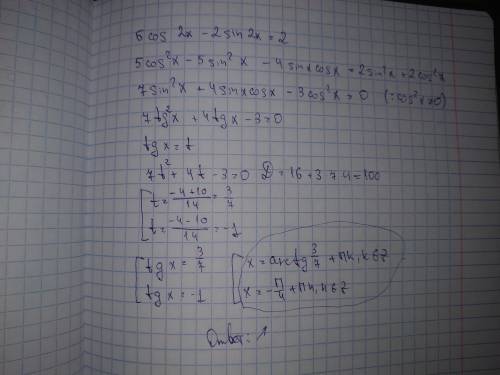 5cos 2x - 2sin 2x = 2
5cos²x - 5sin²x - 4sinxcosx = 2sin²x + 2cos²x
7sin²x + 4sinxcosx - 3cos²x = 0 (:cos²x≠0)
7tg²x + 4tgx - 3 = 0
tg x = t
7t² + 4t - 3 = 0 D = 16 + 3·7·4 = 100
[ t = (-4+10)/14 = 3/7
[ t = (-4-10)/14 = -1
[ tg x = 3/7 [ x = arctg 3/7 + πk, k∈Z
[ tg x = -1 [ x = -π/4 + πk, k∈Z
Ответ: ↑